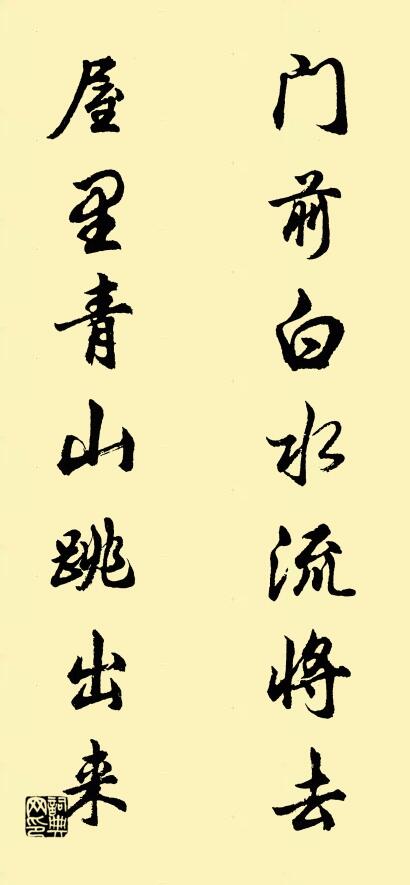 门前白水流将去
屋里青山跳出来
詞典网印